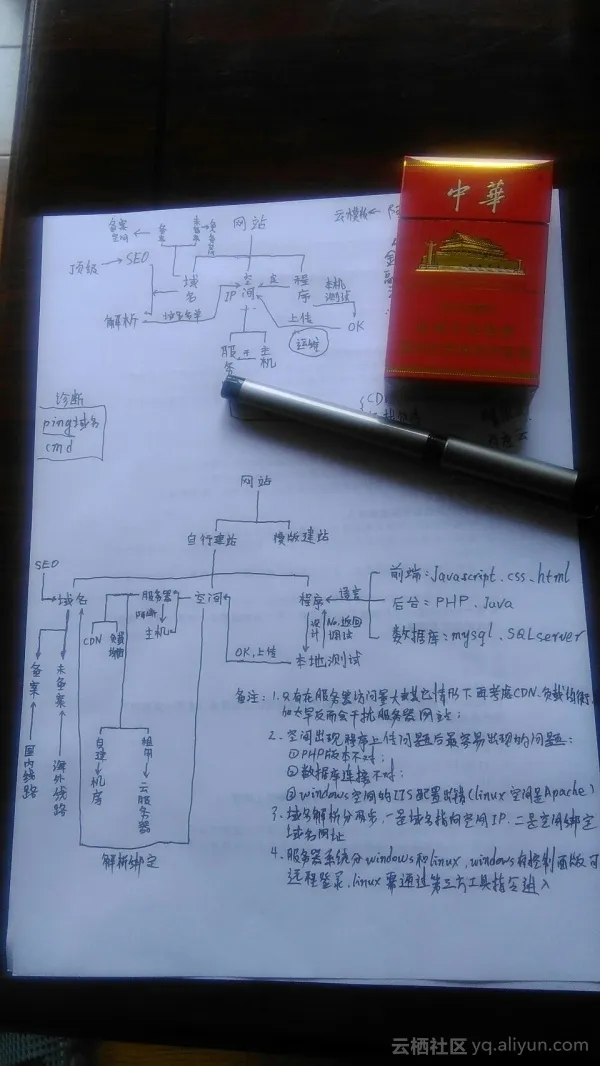 网站
云模板
备案空间
SEO
顶级
域名
空间
IP
程序
本机测试
解析
上传
OK
运维
服务
主机
中華
诊断
ping域名
cmd
网站
自行建站
模版建站
SEO
域名
服务器
空间
程序
语言
前端:Javascript.css.html
后台:PHP.Java
数据库:mysql.SQLserver
CDN
负载均衡
主机
设计
No,返回调试
OK,上传
本地测试
备案
未备案
国内线路
海外线路
自建
机房
租用
云服务器
解析绑定
备注:1.只有在服务器访问量大或其它情形下再考虑CDN.负载均衡,
加太早反而会干扰服务器网站;
2.空间出现程序上传问题后最容易出现的问题:
①PHP版本不对;
②数据库连接不对;
③windows空间的IIS配置出错(linux空间是Apache)
3.域名解析分两步,一是域名指向空间IP.二是空间绑定
域名网址
4.服务器系统分windows和linux,windows有控制面版可
远程登录.linux需通过第三方工具指令进入
云栖社区 yq.aliyun.com